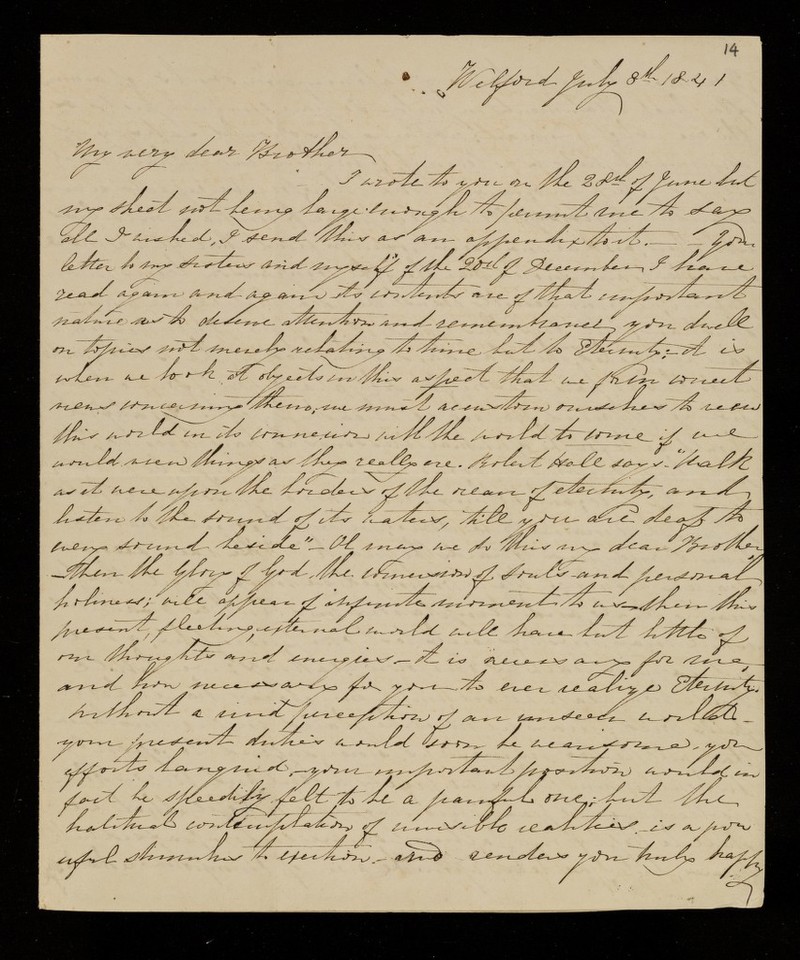 14
Wilford July 8th 1841
My very dear Brother
I wrote to you on the 28th of June but
my sheet not being large enough to permit me to say
all I wished, I send this as an appendix to it. — Your
letter to my sisters and myself of the 20th of December I have
read again and again its contents are of that important
nature as to deserve attention and remembrance, you dwell
on topics not merely relating to time but to Eternity; it is
when we look at objects in this aspect that we form correct
views concerning them, we must accustom ourselves to view
this world in its connexion with the world to come if we
would view things as they really are. Robert Hall says - "Walk
as it were upon the borders of the ocean of eternity, and
listen to the sound of its waters, till you are deaf to
every sound beside" - Oh may we do this my dear Brother
- then the Glory of God, the conversion of souls and personal
holiness; will appear of infinite moment to us - then this
present, fleeting, external world will have but little of
our thoughts and energies - it is necessary for me,
and how necessary for you to ever realize Eternity.
Without a vivid perception of an unseen world -
your present duties would soon be wearisome, your
efforts languid, - your important position would in
fact be speedily felt to be a painful one; but the
habitual contemplation of invisible realities is a pow
erful stimulus to exertion - and renders you truly happy